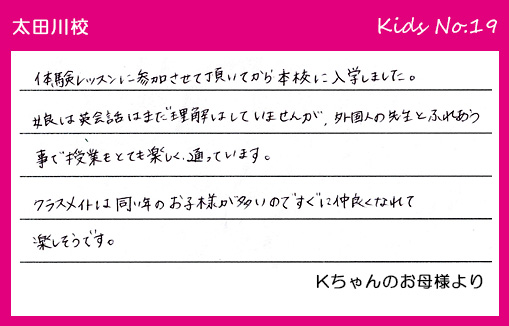 太田川校
Kids No.19
体験レッスンに参加させて頂いてから本校に入学しました。
娘は英会話はまだ理解はしていませんが、外国人の先生とふれあう
事で、授業もとても楽しく通っています。
クラスメイトは同い年のお子様が多いのですぐに仲良くなれて
楽しそうです。
Kちゃんのお母様より